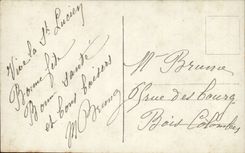 Vive la St Lucien
Bonne fête
Bonne santé
et bons baisers
M Brunne
Mr Brunne
rue des bourg
Bois Colombes